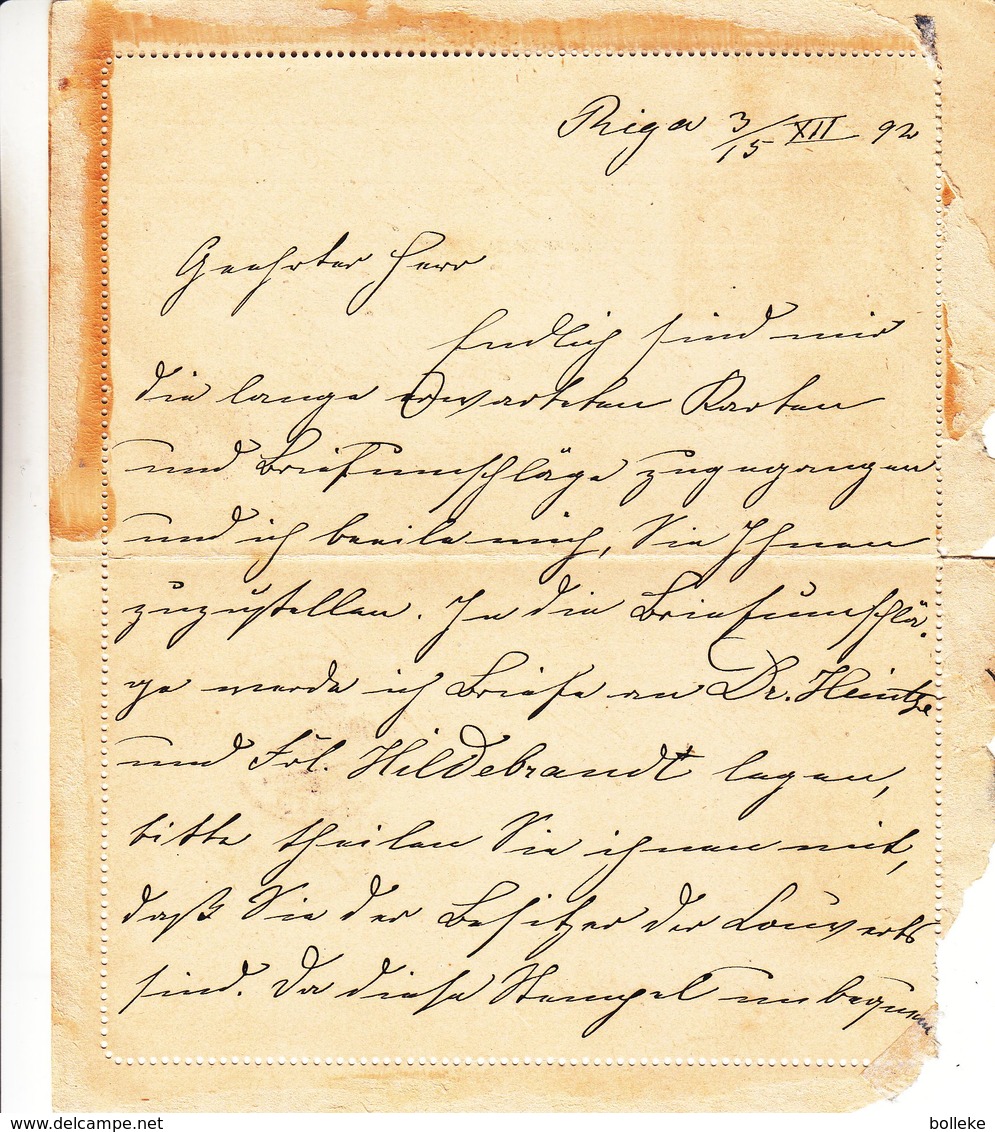 Riga 3/15 XII 92
Geehrter Herr
Endlich sind mir
die lange erwarteten Karten
und Briefumschläge zugegangen
und ich beeile mich, Sie Ihnen
zuzustellen. In die Briefumschlä-
ge werde ich Briefe an Dr. Heintze
und Frl. Hildebrandt legen,
bitte theilen Sie ihnen mit,
daß Sie der Besitzer der Couverts
sind. Da diese Stempel unbequem
bolleke